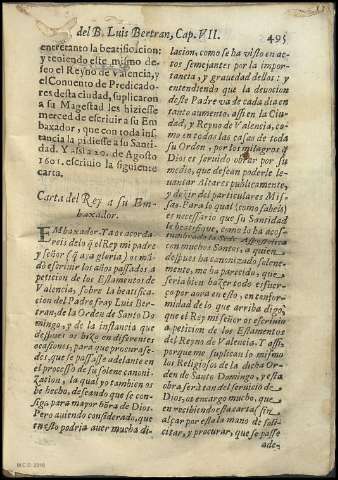 del B. Luis Bertran, Cap. VII.
495
entretanto la beatificacion:
y teniendo este mismo de-
seo el Reyno de Valencia, y
el Conuento de Predicado-
res desta ciudad, suplicaron
a su Magestad les hiziesse
merced de escriuir a su Em
baxador, que con toda ins-
tancia la pidiesse a su Santi-
dad. Y assi a 20. de Agosto
1601. escriuio la siguiente
carta.
Carta del Rey a su Em-
baxador.
EMbaxador. Ya os acorda
reis de lo q̃ el Rey mi padre
y señor (q̃ aya gloria) os mã-
dò escriuir los años passados, a
peticion de los Estamentos de
Valencia, sobre la beatifica-
cion del Padre fray Luis Ber-
tran, de la Orden de Santo Do
mingo, y de la instancia que
despues se hizo en diferentes
ocasiones, para que procurasse-
des, que se passasse adelante en
el processo de su solene canoni-
zacion, la qual yo tambien os
he hecho, desseando que se con-
siga, para mayor hõra de Dios.
Pero auiendo considerado, que
en esto podria auer mucha di-
lacion, como se ha visto en ac-
tos semejantes por la impor-
tancia, y grauedad dellos: y
entendiendo que la deuocion
de este Padre va de cada dia en
tanto aumento, assi en la Ciu-
dad, y Reyno de Valencia, co-
mo en todas las casas de toda
su Orden, por los milagros q̃
Dios es seruido obrar por su
medio, que dessean poderle le-
uantar Altares publicamente,
y dezir del particulares Mis-
sas. Para lo qual (como sabeis)
es necessario que su Santidad
le beatifique, como lo ha acos-
tumbrado la Sede Apostolica
con muchos Santos, a quien
despues ha canonizado solene-
mente, me ha parecido, que
seria bien hazer todo esfuer-
ço por aora en esto, en confor-
midad de lo que arriba digo,
que el Rey mi señor os escriuio
a peticion de los Estamentos
del Reyno de Valencia. Y assi,
porque me suplican lo mismo
los Religiosos de la dicha Or-
den de Santo Domingo, y esta
obra serà tan del seruicio de
Dios, os encargo mucho, que
en recibiendo esta carta, sin
alçar por esto la mano de soli-
citar, y procurar, que se passe
ade-
M.C.D. 2016